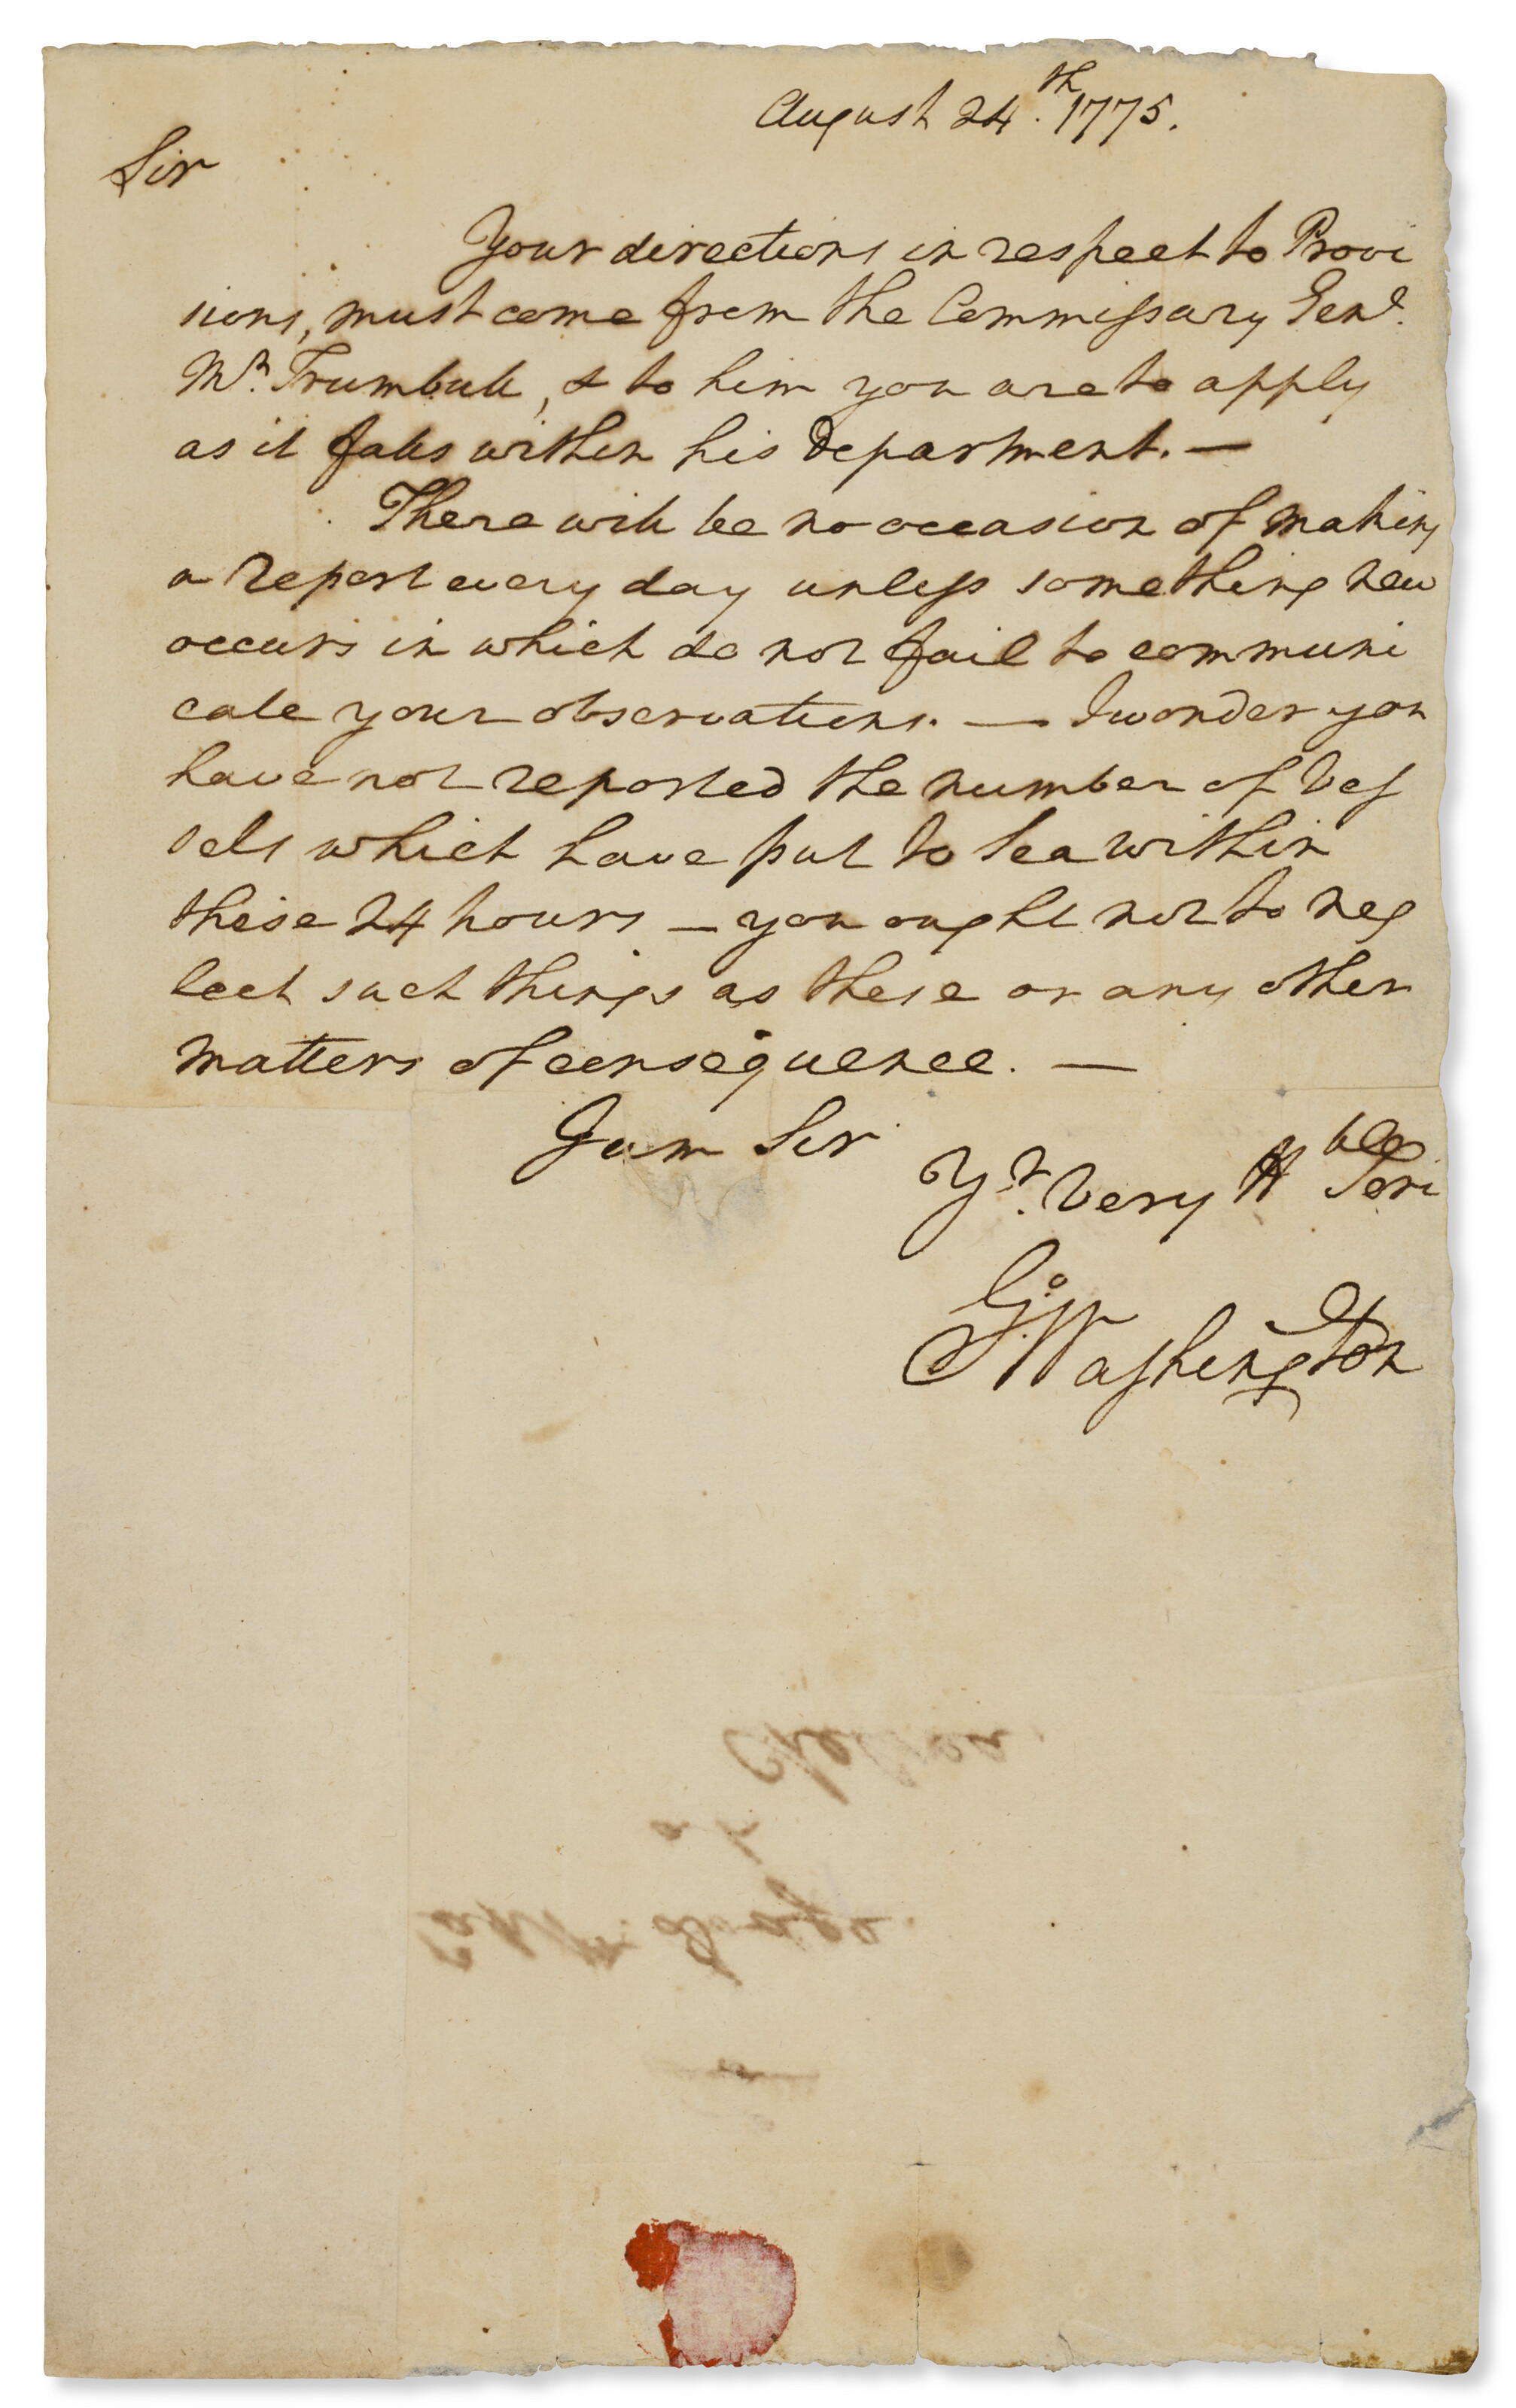 August 24.th 1775.
Sir
Your directions in respect to Provi
sions, must come from the Commissary Genl.
Mr. Trumbull, & to him you are to apply
as it falls within his Department. —
There will be no occasion of making
a Report every day unless something new
occurs in which do not fail to communi
cate your observations. — I wonder you
have not reported the number of Ves
sels which have put to Sea within
these 24 hours — you ought not to neg
lect such things as these or any other
matters of consequence. —
I am Sir
Yr. Very Hble Serv
Go. Washington
Chelsea.
at
Captn. Dodge